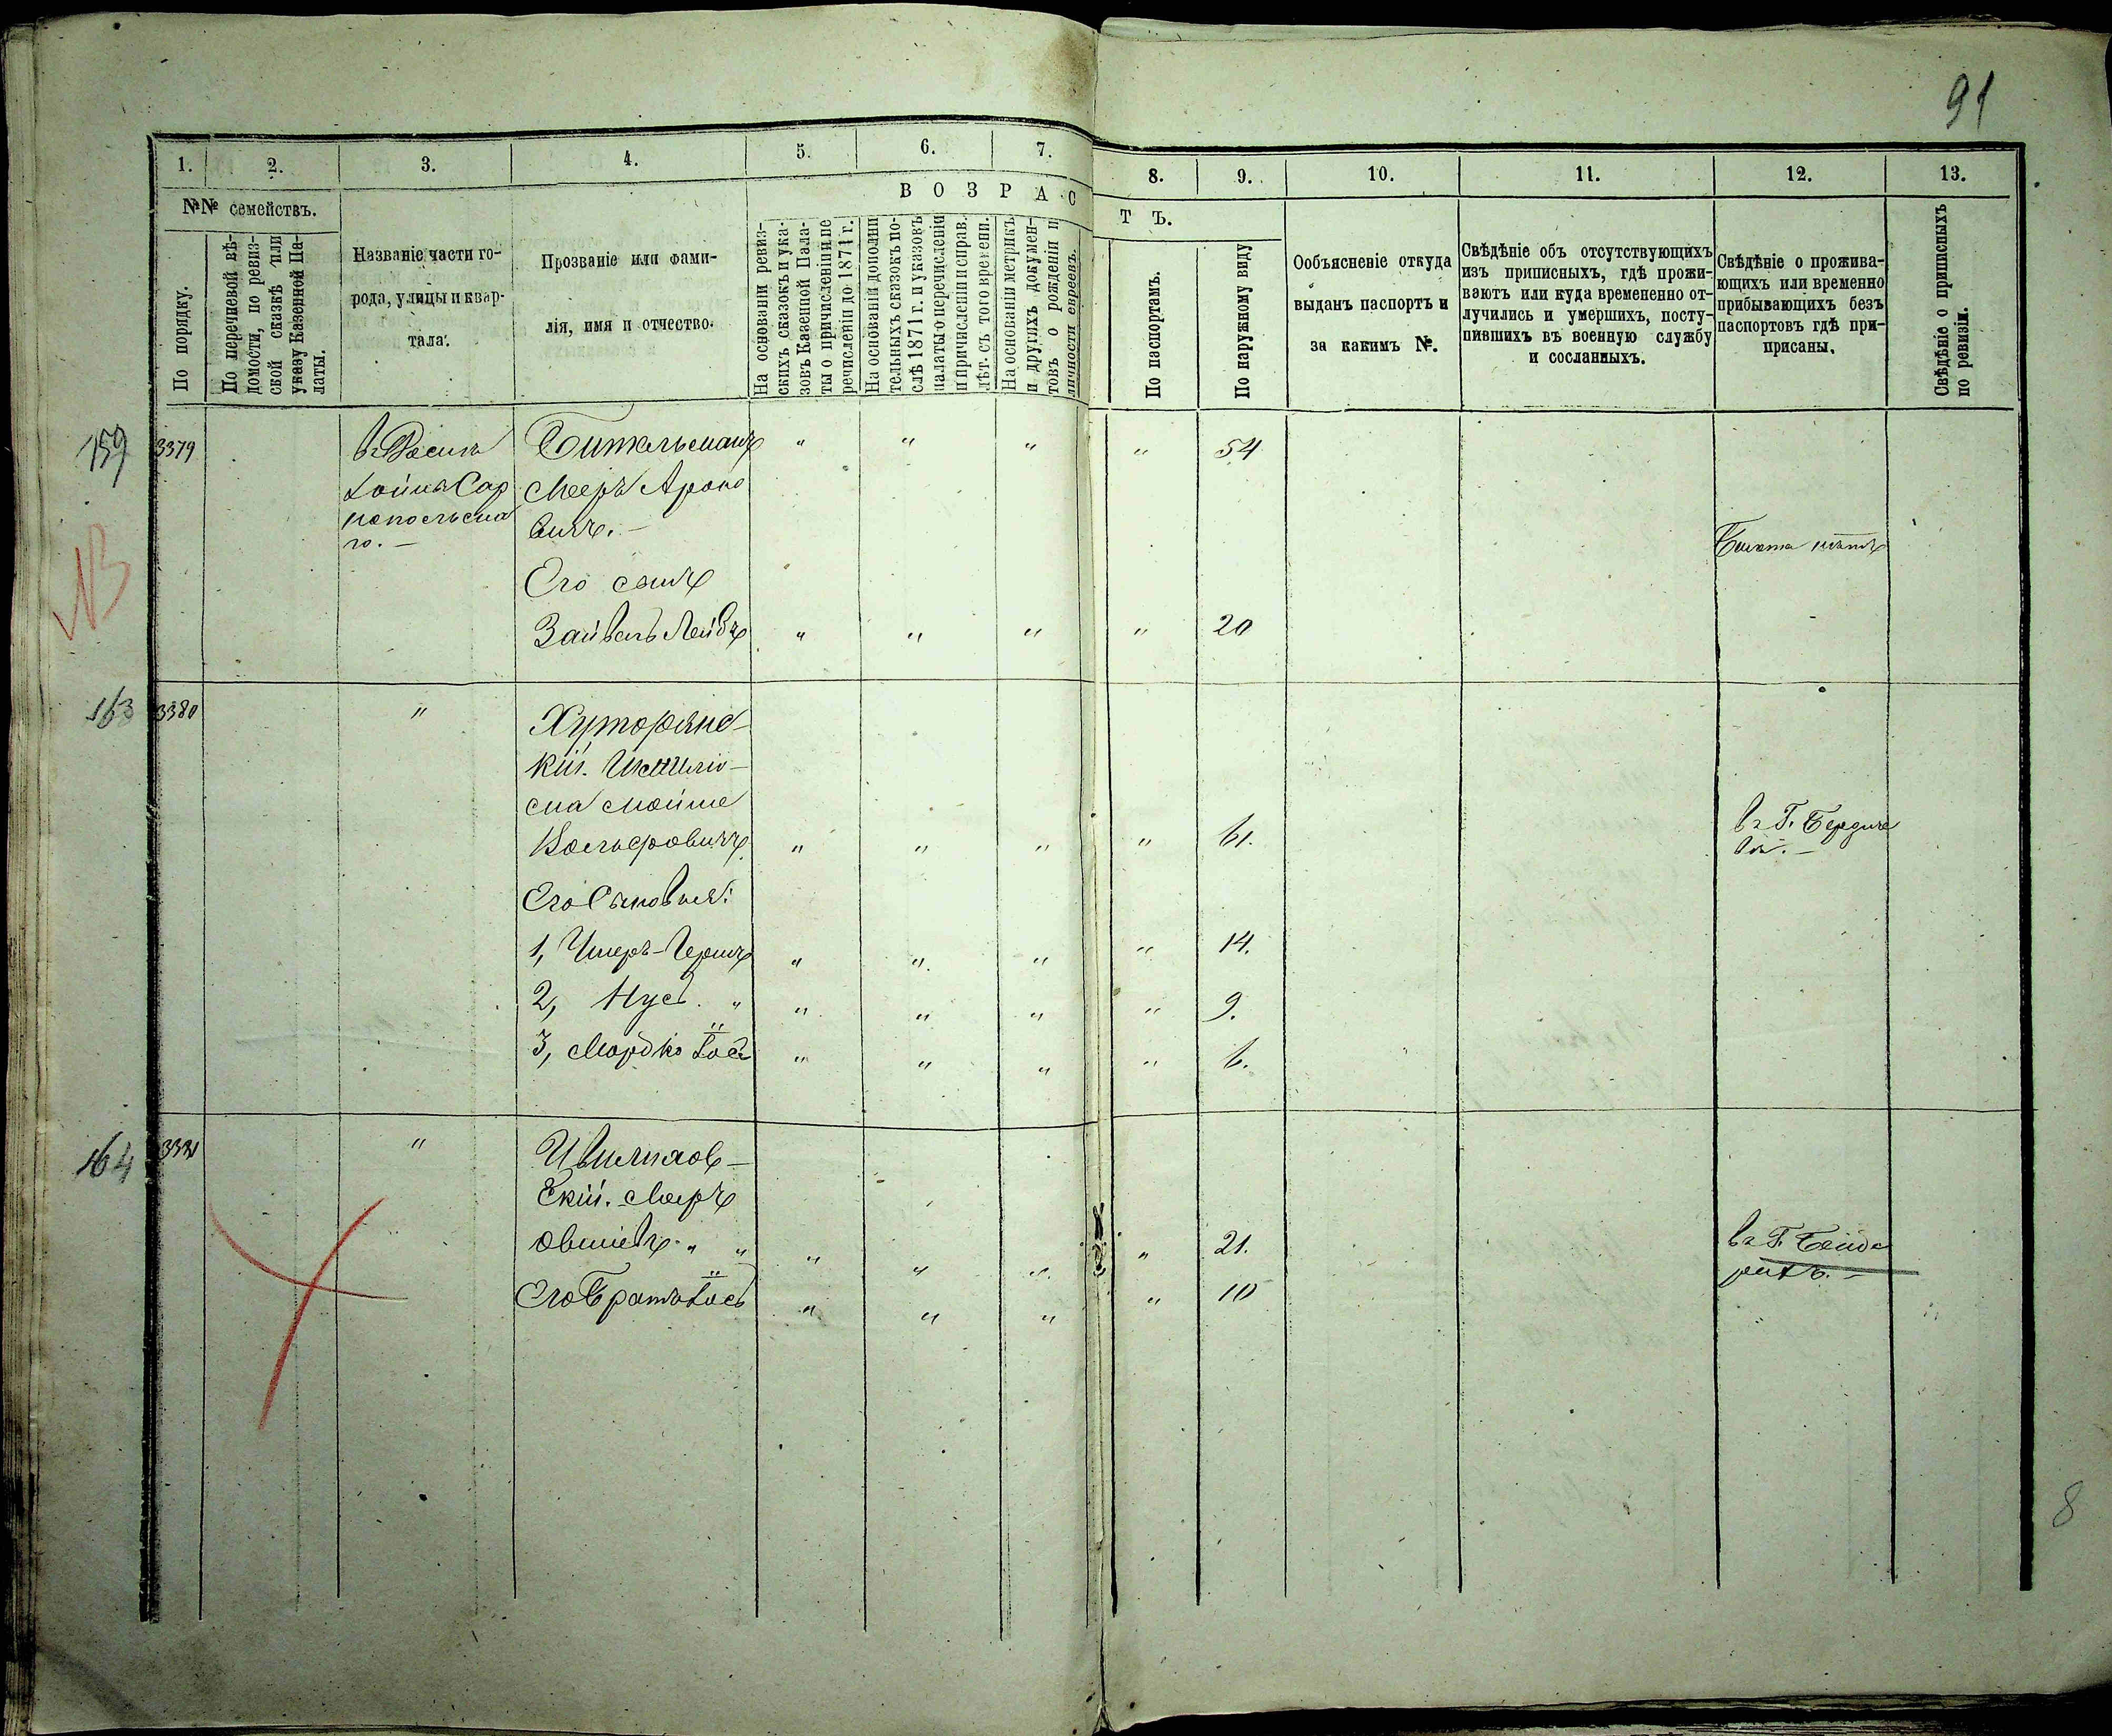 91
1. 2. 3. 4. 5. 6. 7. 8. 9. 10. 11. 12. 13.
№№ семействъ.
По порядку.
По перечневой вѣ-
домости, по ревиз-
ской сказкѣ или
указу Казенной Па-
латы.
Названіе части го-
рода, улицы и квар-
тала.
Прозваніе или фами-
лія, имя и отчество.
ВОЗРАСТЪ.
На основаніи ревиз-
скихъ сказокъ и ука-
зовъ Казенной Пала-
ты о причисленіи и пе
речисленіи до 1871 г.
На основаніи дополни
тельныхъ сказокъ по-
слѣ 1871 г. и указовъ
палаты о перечисленіи
и причисленіи и справ.
лѣт. съ того времени.
На основаніи метрикъ
и другихъ докумен-
товъ о рожденіи и
личности евреевъ.
По паспортамъ.
По наружному виду
Ообъясненіе откуда
выданъ паспортъ и
за какимъ №.
Свѣдѣніе объ отсутствующихъ
изъ приписныхъ, гдѣ прожи-
ваютъ или куда времененно от-
лучились и умершихъ, посту-
пившихъ въ военную службу
и сосланныхъ.
Свѣдѣніе о прожива-
ющихъ или временно
прибывающихъ безъ
паспортовъ гдѣ при-
писаны.
Свѣдѣніе о приписныхъ
по ревизіи.
159 3379
Мееръ Ароно
вичъ. —
Его сынъ
" " " " 54
Билета нѣтъ
Зайвель Лейбъ " " " " 20
NB
163 3380 "
Хуторянс-
кій.
Мойше
Вольфовичъ " " " " 61.
въ Г. Бердиче
вѣ. —
Его Сыновья:
1, Умеръ-Гершъ " " " " 14.
2, Нусъ. " " " " " 9.
3, Мордко Іось " " " " 6.
164 3381 "
скій. Мееръ
Овшіевъ. " " " " " " 21.
въ Г. Бенде
рахъ. —
Его Братъ Іось " " " " 10
8